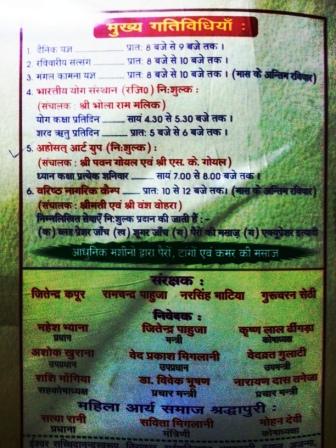 मुख्य गतिविधियाँ :
1. दैनिक यज्ञ ........ प्रातः 8 बजे से 9 बजे तक ।
2. रविवारीय सत्संग ........ प्रातः 8 बजे से 10 बजे तक ।
3. मंगल कामना यज्ञ ........ प्रातः 8 बजे से 10 बजे तक । (मास के अन्तिम रविवार)
4. भारतीय योग संस्थान (रजि०) निःशुल्क :
(संचालक : श्री भोला राम मलिक)
योग कक्षा प्रतिदिन ........ सायं 4.30 से 5.30 बजे तक ।
शरद ऋतु प्रतिदिन ........ प्रातः 5 बजे से 6 बजे तक ।
5. अहोसत् आर्ट ग्रुप (निःशुल्क) :
(संचालक : श्री पवन गोयल एवं श्री एस. के. गोयल)
ध्यान कक्षा प्रत्येक शनिवार ........ सायं 7.00 से 8.00 बजे तक ।
6. वरिष्ठ नागरिक कैम्प ........ प्रातः 10 से 12 बजे तक। (मास के अन्तिम रविवार)
(संचालक : श्रीमती एवं श्री वंश वोहरा)
निम्नलिखित सेवाएँ निःशुल्क प्रदान की जाती हैं :-
(क) ब्लड प्रेशर जाँच (ख) शूगर जाँच (ग) पैरों की मसाज (घ) एक्यूप्रेशर इत्यादि
आधुनिक मशीनों द्वारा पैरों, टांगों एवं कमर की मसाज
संरक्षक :
जितेन्द्र कपूर रामचन्द्र पाहुजा नरसिंह भाटिया गुरूचरन सेठी
निवेदक :
महेश भ्याना जितेन्द्र पाहुजा कृष्ण लाल ढींगड़ा
प्रधान मन्त्री कोषाध्यक्ष
अशोक खुराना वेद प्रकाश मिगलानी वेदव्रत गुलाटी
उपप्रधान उपप्रधान उपमन्त्री
राशि मोंगिया डा. विवेक भूषण नारायण दास तनेजा
सहकोषाध्यक्ष प्रचार मन्त्री प्रचार मन्त्री
महिला आर्य समाज श्रद्धापुरी :
सत्या रानी सविता मिगलानी मोहन देवी
प्रधाना मंत्रिणी कोषाध्यक्षा